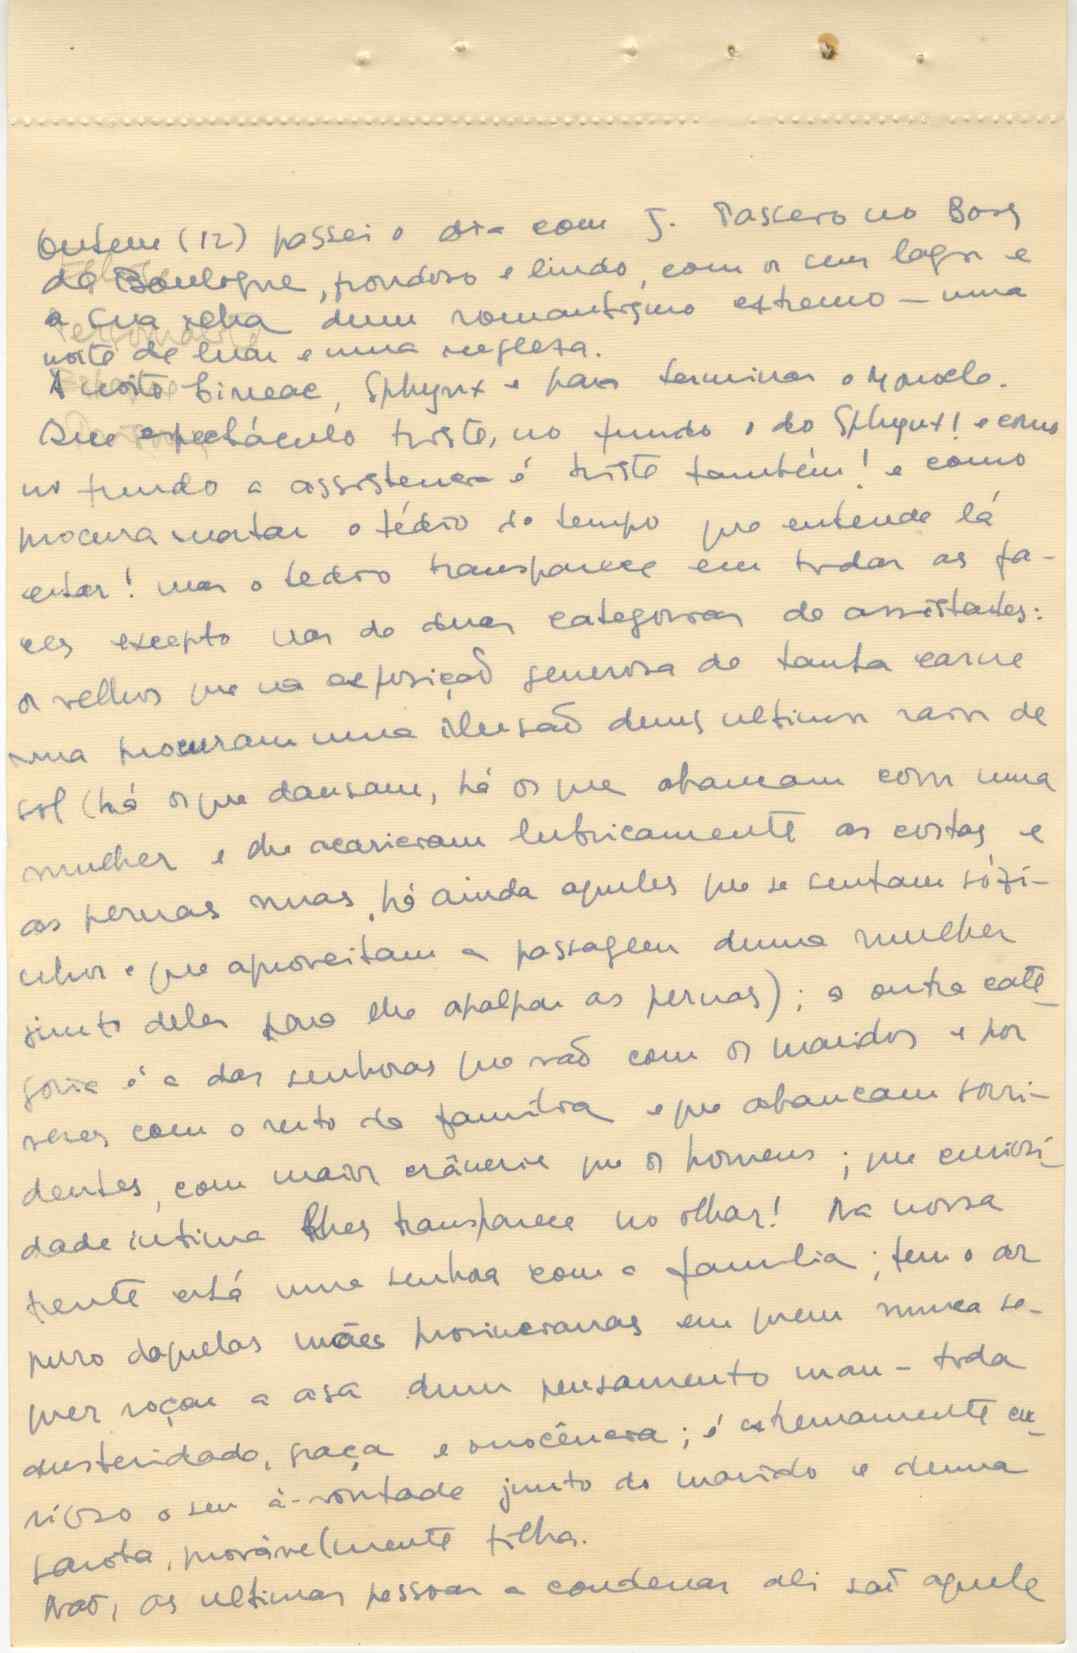 Ontem (12) passei o dia com J. Pasceiro no Bois
de Boulogne, frondoso e lindo, com os seus lagos e
a sua relva dum romantismo extremo — uma
noite de luar e uma inglesa.
À noite Cineac, Sphynx e para terminar o Monocle.
Que espectáculo triste, no fundo o do Sphynx! e como
no fundo a assistencia é triste também! e como
procura matar o tédio do tempo que entende lá
estar! mas o tedio transparece em todas as fa-
ces excepto nas de duas categorias de assistentes:
os velhos que na exposição generosa de tanta carne
nua procuram uma ilusão duns ultimos raios de
sol (há os que dansam, há os que abancam com uma
mulher e lhe acariciam lubricamente as costas e
as pernas nuas, há ainda aqueles que se sentam sózi-
nhos e que aproveitam a passagem duma mulher
junto deles para lhe apalpar as pernas); a outra cate-
goria é a das senhoras que vão com os maridos e por
vezes com o resto da família e que abancam sorri-
dentes, com maior crânerie que os homens; que curiosi-
dade intima lhes transparece no olhar! Na nossa
frente está uma senhora com a familia; tem o ar
puro daquelas mães provincianas em quem nunca se-
quer roçou a asa dum pensamento mau — toda
austeridade, graça e inocência; é extremamente cu-
rioso o seu à-vontade junto do marido e duma
garota, provàvelmente filha.
Não, as ultimas pessoas a condenar ali são aquele